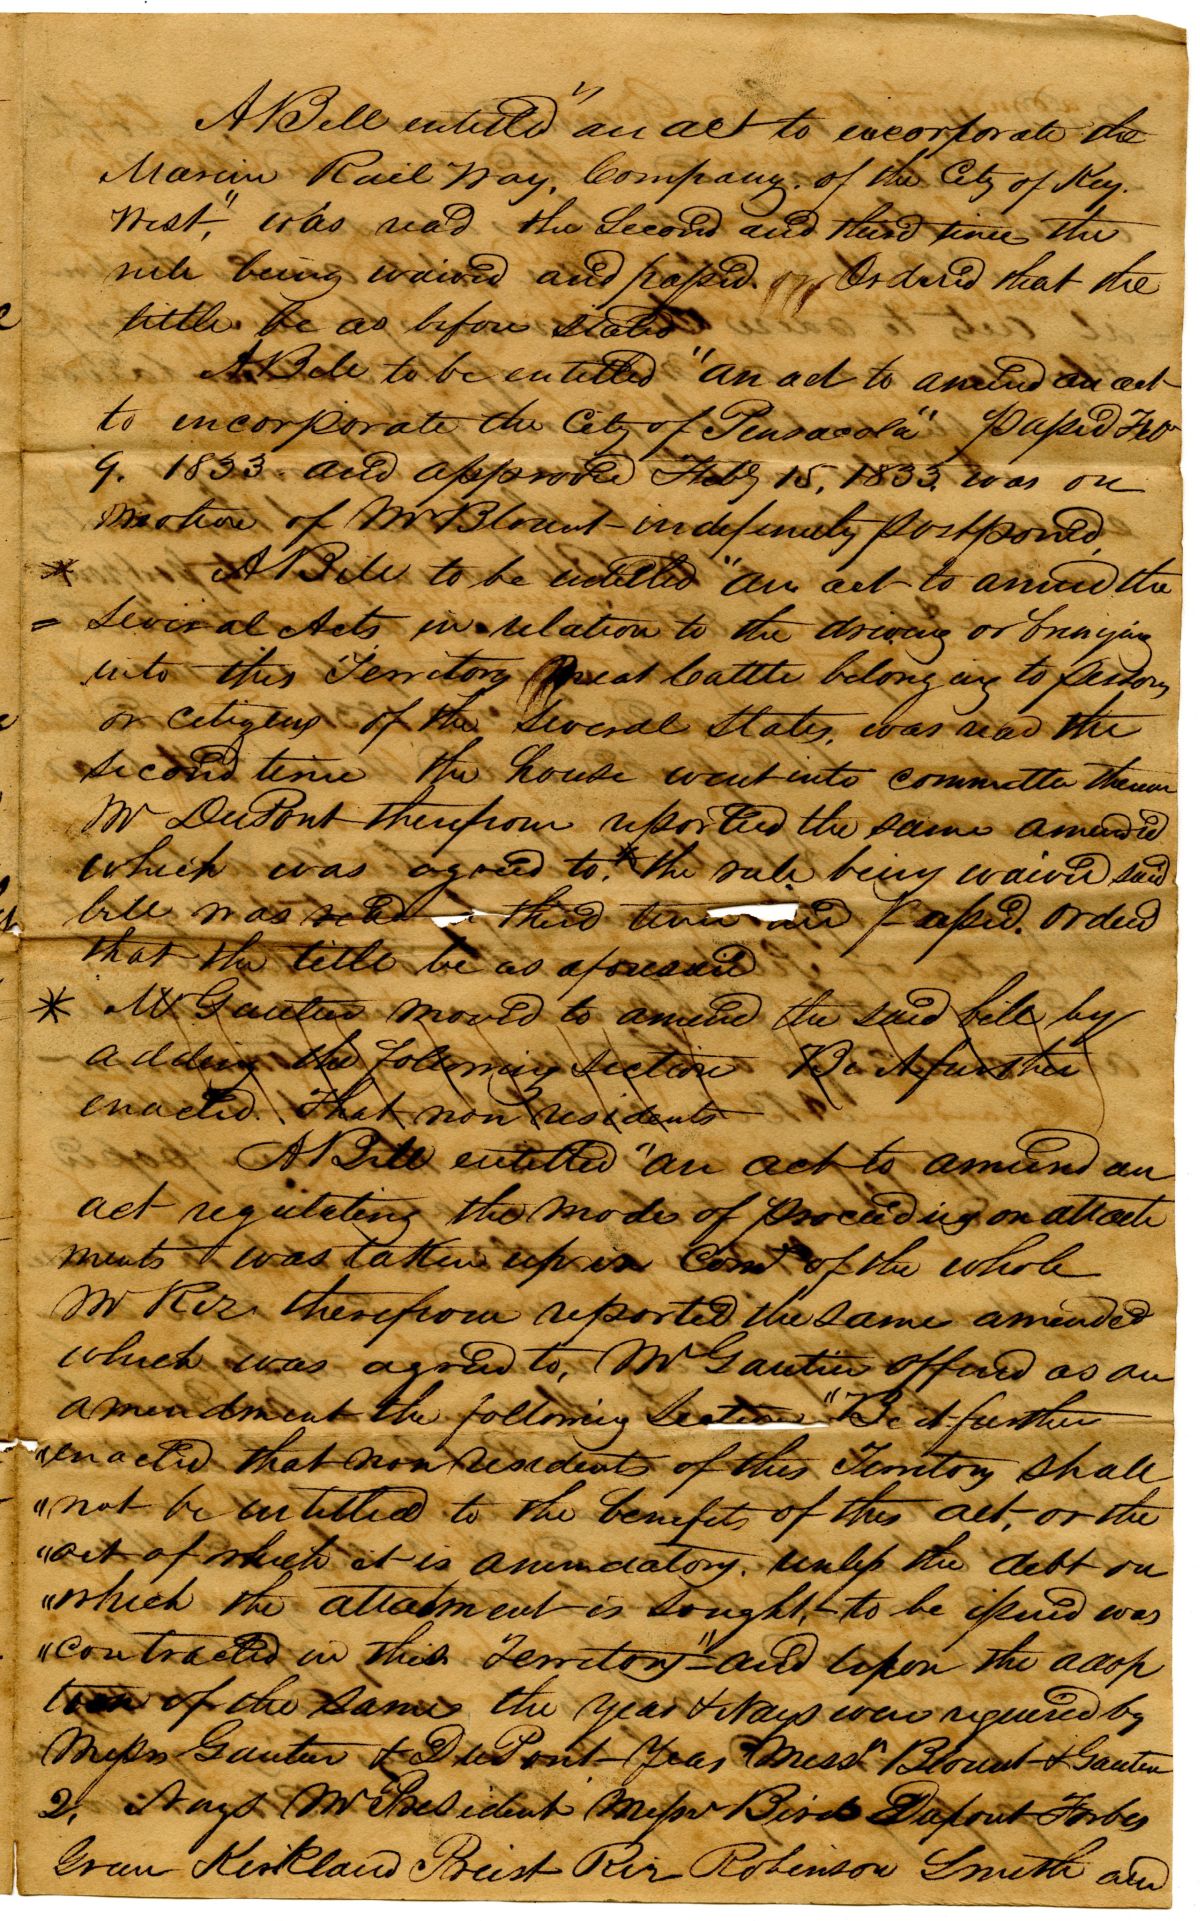 A Bill entitled "an act to incorporate the
Marine Rail Way, Company. of the City of Key.
West," was read the Second and third time the
rule being waived and passed. Ordered that the
title be as before stated
A Bill to be entitled "an act to amend an act
to incorporate the City of Pensacola" passed Feb
9. 1833. and approved Feby 15, 1833. was on
motion of Mr Blount indefinitely postponed.
* A Bill to be entitled "an act to amend the
= several Acts in relation to the driving or bringing
into this Territory Neat Cattle belonging to persons
or citizens of the several States, was read the
second time the house went into committee thereon
Mr DuPont therefrom reported the same amended
which was agreed to.* the rule being waived said
bill was read a third time and passed. Ordered
that the title be as aforesaid
* Mr Gautier moved to amend the said bill by
adding the following section Be it further
enacted. That non residents
A Bill entitled "an act to amend an
act regulating the mode of proceeding on attach
ments was taken up in Com of the whole
Mr Riz therefrom reported the same amended
which was agreed to, Mr Gautier offered as an
amendment the following section "Be it further
"enacted that non residents of this Territory shall
"not be entitled to the benefits of this act, or the
"act of which it is amendatory. unless the debt on
"which the attachment is sought, to be issued was
"contracted in this Territory" and upon the adop
tion of the same the yeas & Nays were required by
Messrs Gautier & DuPont Yeas Messrs Blount & Gautier
2. Nays Mr President Messrs Bird Dupont Forbes
Green Kirkland Priest Riz Robinson Smith and